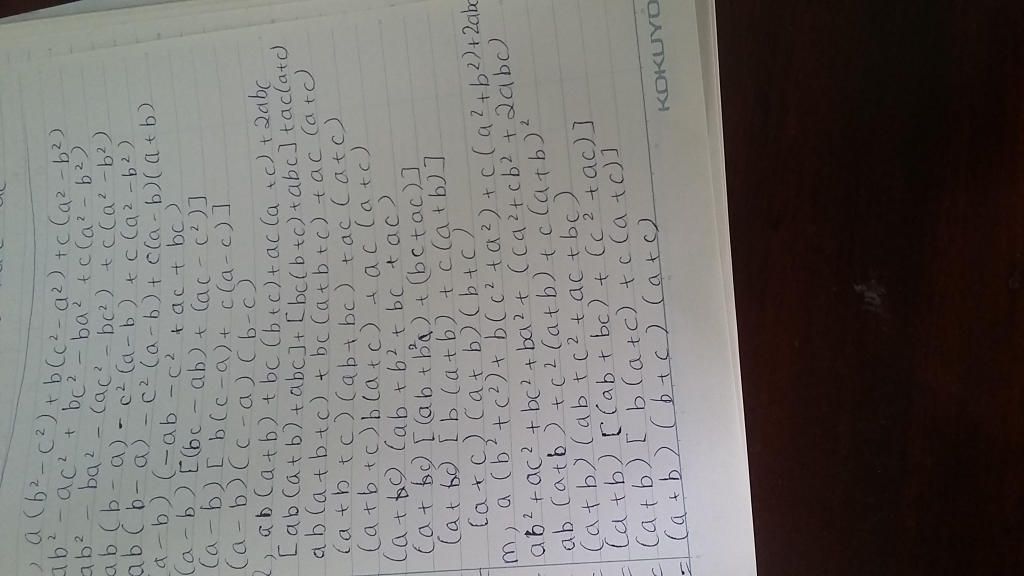 , a(b²-c²)+b(c²-a²)+c(a²-b²)
ab²-ac²+bc²-ba²+c(a²-b²)
ab²-ba²-(ac²-bc²)+c(a²-b²)
ab(b-a)-c²(a-b)+c(a²-b²)
ab(b-a)-c²(a-b)+c(a-b)(a+b)
(a-b)(-ab-c²+ac+bc)
(a-b)[(bc-ab)+(ac-c²)]
(a-b)[b(c-a)+c(a-c)]
(a-b)(c-a)(b-c)
ab(a+b)+bc(b+c)+ac(a+c)+2abc
[ab(a+b)+abc]+[bc(b+c)+abc]+ac(a+c)
ab(a+b+c)+bc(a+b+c)+ac(a+c)
(a+b+c)(ab+bc)+ac(a+c)
(a+b+c)b(a+c)+ac(a+c)
(a+c)(ab+b²+bc+ac)
(a+c)[(ab+b²)+(bc+ac)]
(a+c)[b(a+b)+c(a+b)]
(a+c)(a+b)(b+c)
m, a(b²+c²)+b(c²+a²)+c(a²+b²)+2abc
ab²+ac²+bc²+ba²+(ca²+cb²+2abc)
ab(a+b)+c²(a+b)+c(a+b)²
=(a+b)(ab+c²+ac+bc)
=(a+b)[(ab+bc)+(c²+ac)]
=(a+b)[b(a+c)+c(a+c)]
=(a+b)(b+c)(a+c)
KOKUYO